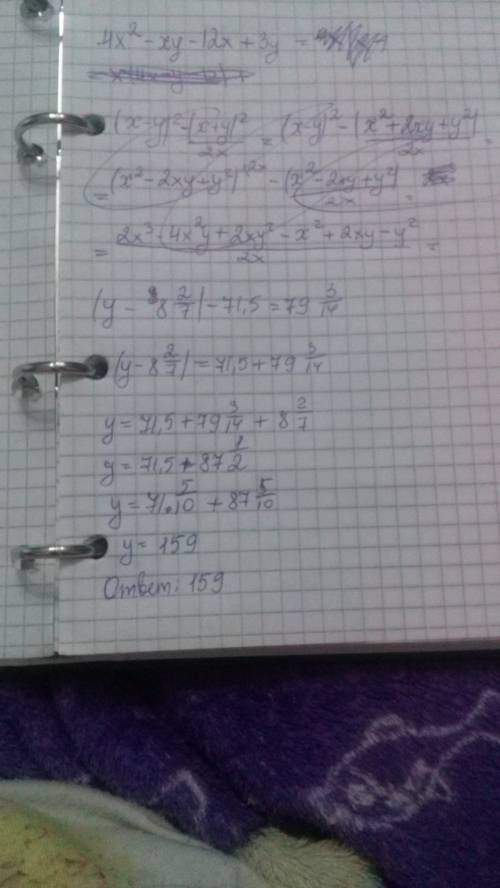 4x² - xy - 12x + 3y =
(x-y)² - (x+y)²/2x = (x-y)² - (x²+2xy+y²)/2x =
= (x² - 2xy + y²)^(2x - (x² - 2xy + y²)/2x =
= 2x³ - 4x²y + 2xy² - x² + 2xy - y²/2x =
(y - 8 2/7) - 71,5 = 79 3/14
(y - 8 2/7) = 71,5 + 79 3/14
y = 71,5 + 79 3/14 + 8 2/7
y = 71,5 + 87 1/2
y = 71 5/10 + 87 5/10
y = 159
Ответ: 159